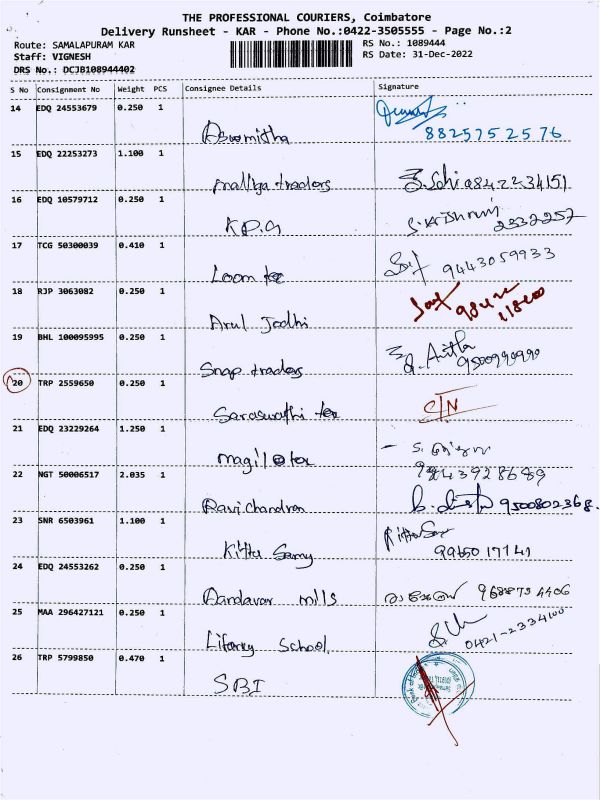 THE PROFESSIONAL COURIERS, Coimbatore
Delivery Runsheet - KAR - Phone No.:0422-3505555 - Page No.:2
Route: SAMALAPURAM KAR
RS No.: 1089444
Staff: VIGNESH
RS Date: 31-Dec-2022
DRS No.: DCJB108944402
S No Consignment No Weight PCS Consignee Details Signature
14 EDQ 24553679 0.250 1
Aswmitha 8825752576
15 EDQ 22253273 1.100 1
traders
16 EDQ 10579712 0.250 1
K.P.G 2332257
17 TCG 50300039 0.410 1
Loom tex 9443059933
18 RJP 3063082 0.250 1
Arul Jodhi
19 BHL 100095995 0.250 1
Snap traders
20 TRP 2559650 0.250 1
Saraswathi tex C/N
21 EDQ 23229264 1.250 1
magil tex
22 NGT 50006517 2.035 1
Ravi Chandran 9500802368
23 SNR 6503961 1.100 1
Kittu Samy 9965017141
24 EDQ 24553262 0.250 1
Aandavar mills
25 MAA 296427121 0.250 1
School 0421-2334100
26 TRP 5799850 0.470 1
SBI